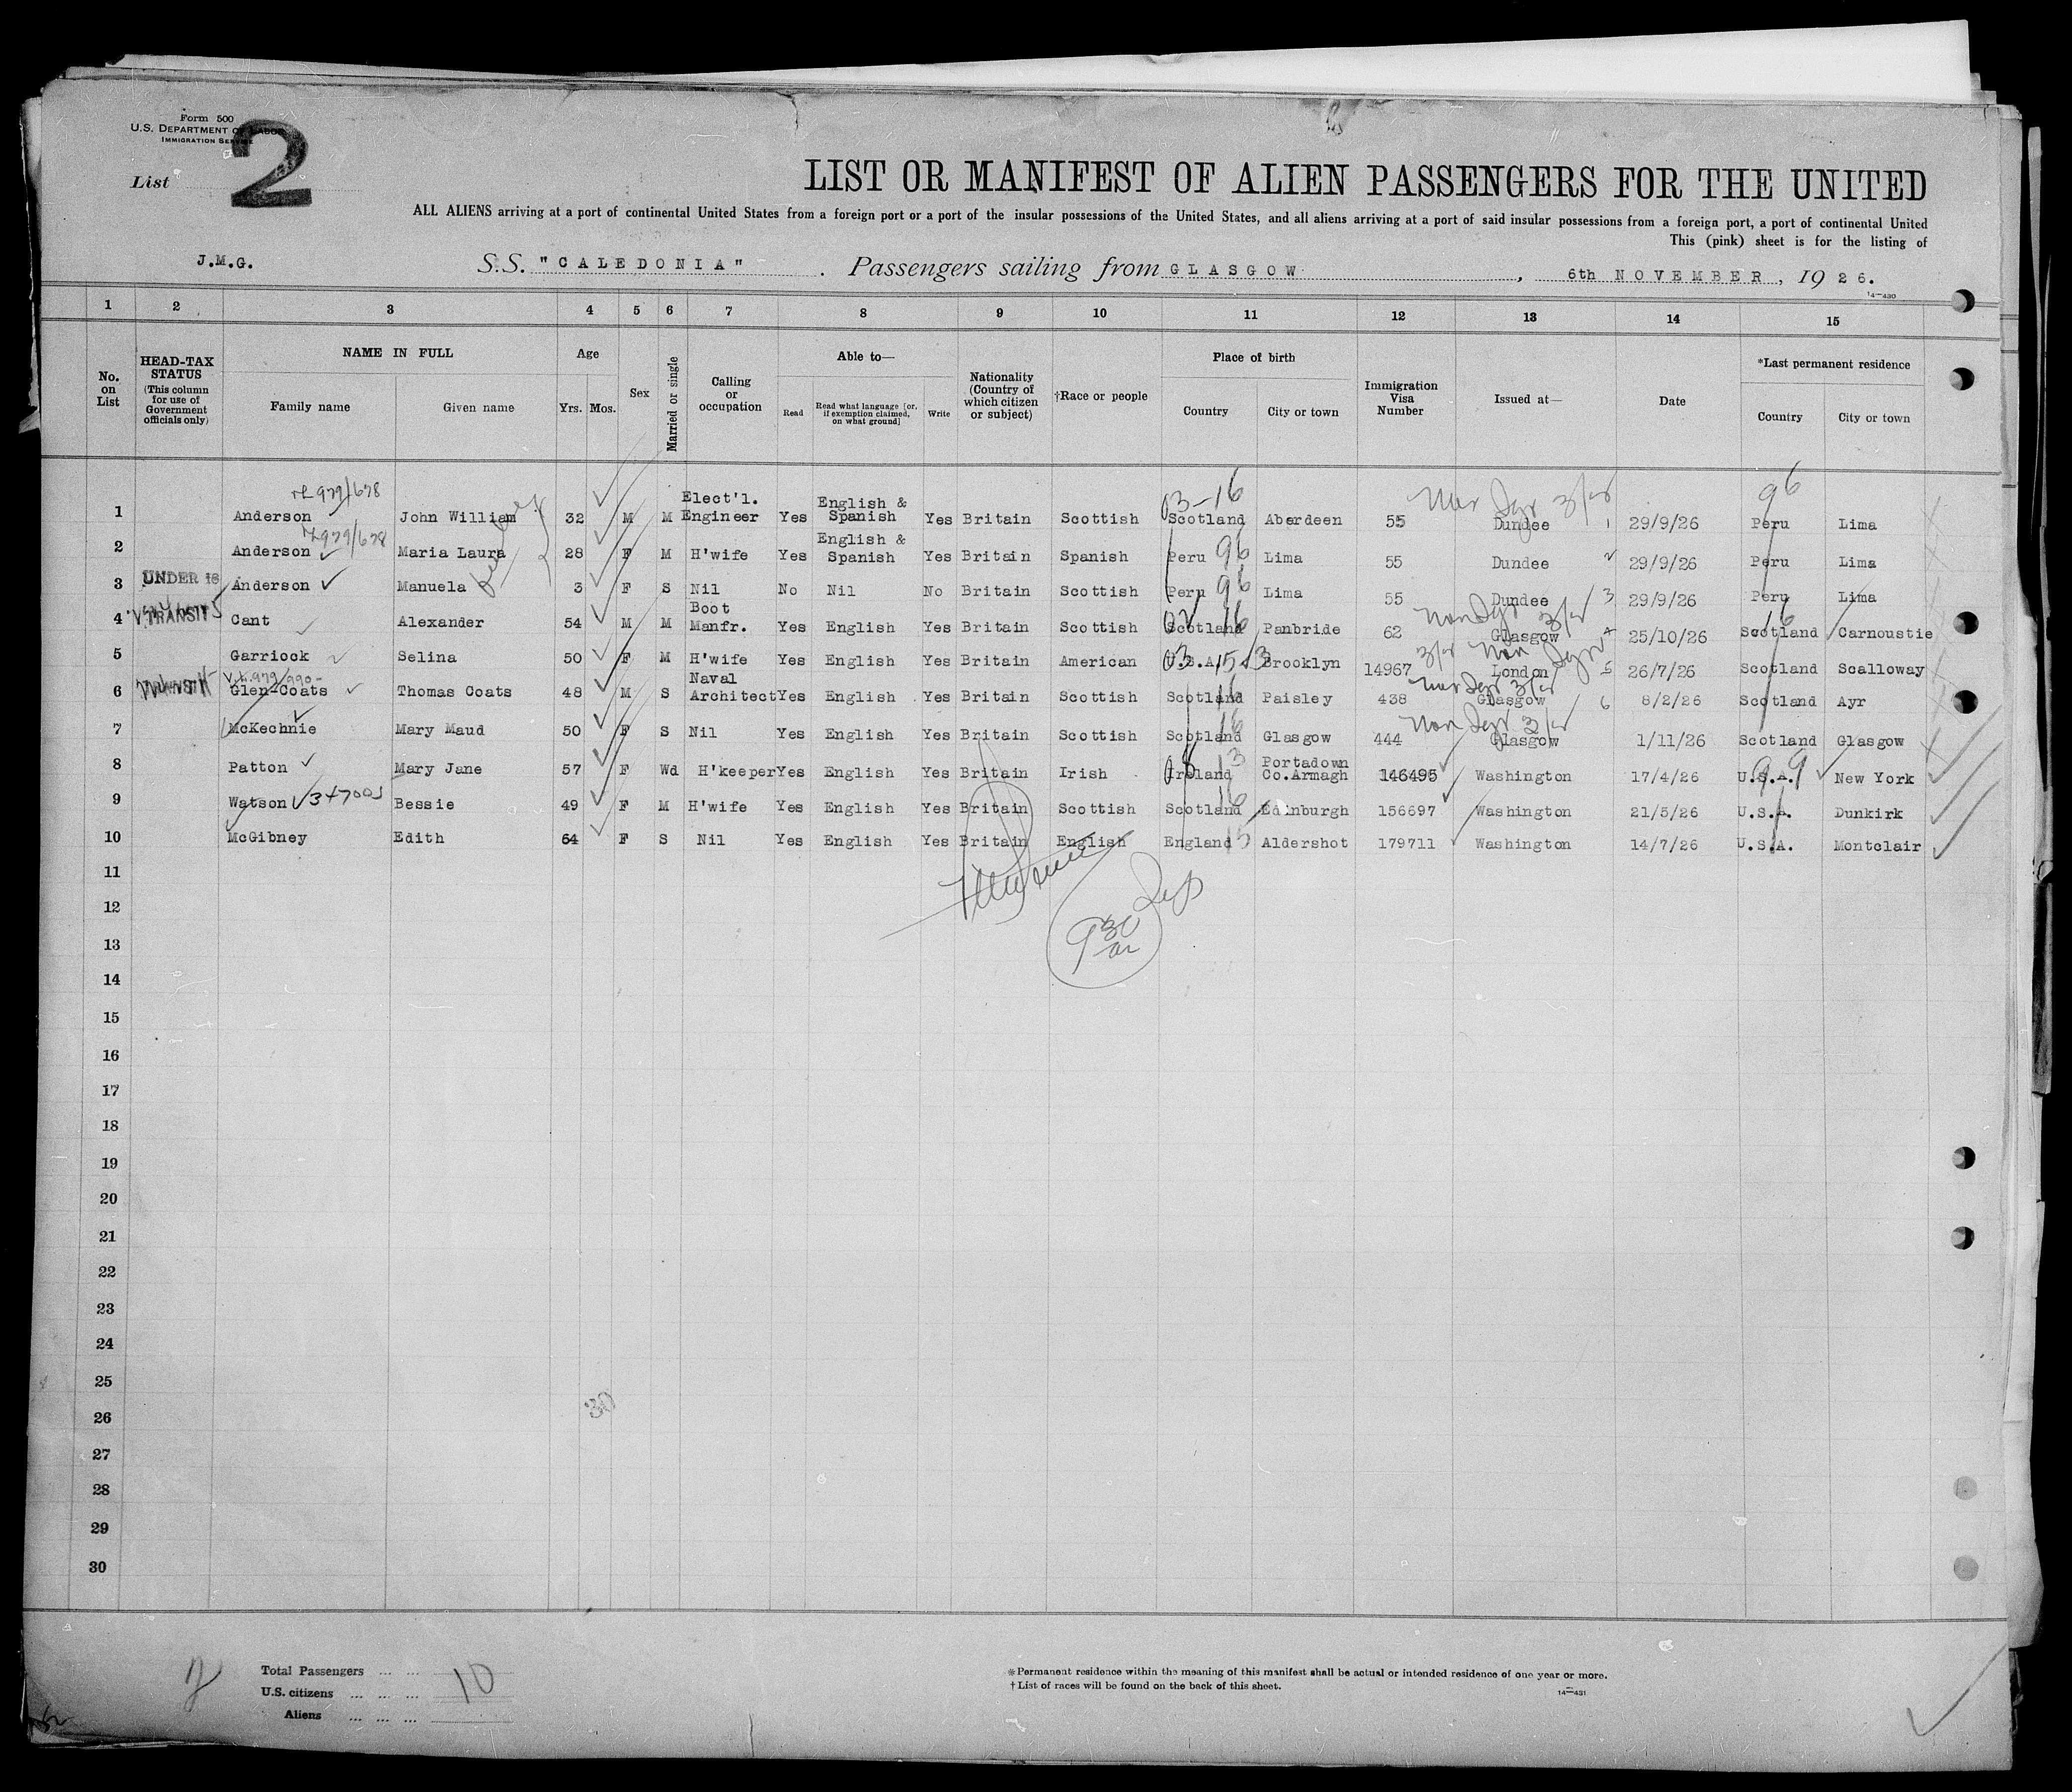 Form 500
U.S. DEPARTMENT OF LABOR
IMMIGRATION SERVICE
List 2
LIST OR MANIFEST OF ALIEN PASSENGERS FOR THE UNITED
ALL ALIENS arriving at a port of continental United States from a foreign port or a port of the insular possessions of the United States, and all aliens arriving at a port of said insular possessions from a foreign port, a port of continental United
This (pink) sheet is for the listing of
J.M.G. S.S. "CALEDONIA" . Passengers sailing from GLASGOW , 6th NOVEMBER, 1926.
14—430
1 2 3 4 5 6 7 8 9 10 11 12 13 14 15
No. on List
HEAD-TAX STATUS (This column for use of Government officials only)
NAME IN FULL
Family name Given name
Age
Yrs. Mos.
Sex
Married or single
Calling or occupation
Able to—
Read Read what language [or, if exemption claimed, on what ground] Write
Nationality (Country of which citizen or subject)
†Race or people
Place of birth
Country City or town
Immigration Visa Number
Issued at—
Date
*Last permanent residence
Country City or town
1 Anderson 979/678 John William 32 M M Elect'l. Engineer Yes English & Spanish Yes Britain Scottish 03-16 Scotland Aberdeen 55 Dundee 1 29/9/26 96 Peru Lima
2 Anderson 979/678 Maria Laura 28 F M H'wife Yes English & Spanish Yes Britain Spanish Peru 96 Lima 55 Dundee 2 29/9/26 Peru Lima
3 UNDER 16 Anderson Manuela 3 F S Nil No Nil No Britain Scottish Peru 96 Lima 55 Dundee 3 29/9/26 Peru Lima
4 TRANSIT Cant Alexander 54 M M Boot Manfr. Yes English Yes Britain Scottish Scotland 16 Panbride 62 Glasgow 4 25/10/26 Scotland 16 Carnoustie
5 Garriock Selina 50 F M H'wife Yes English Yes Britain American U.S.A. Brooklyn 14967 London 5 26/7/26 Scotland Scalloway
6 Glen-Coats 979/990 Thomas Coats 48 M S Naval Architect Yes English Yes Britain Scottish Scotland 16 Paisley 438 Glasgow 6 8/2/26 Scotland Ayr
7 McKechnie Mary Maud 50 F S Nil Yes English Yes Britain Scottish Scotland 16 Glasgow 444 Glasgow 1/11/26 Scotland Glasgow
8 Patton Mary Jane 57 F Wd H'keeper Yes English Yes Britain Irish Ireland 13 Portadown Co.Armagh 146495 Washington 17/4/26 U.S.A. 99 New York
9 Watson Bessie 49 F M H'wife Yes English Yes Britain Scottish Scotland 16 Edinburgh 156697 Washington 21/5/26 U.S.A. Dunkirk
10 McGibney Edith 64 F S Nil Yes English Yes Britain English England 15 Aldershot 179711 Washington 14/7/26 U.S.A. Montclair
11
12
13
14
15
16
17
18
19
20
21
22
23
24
25
26
27
28
29
30
930
30
Total Passengers ... ... 10
U.S. citizens ... ... ...
Aliens ... ... ...
*Permanent residence within the meaning of this manifest shall be actual or intended residence of one year or more.
†List of races will be found on the back of this sheet.
14—431